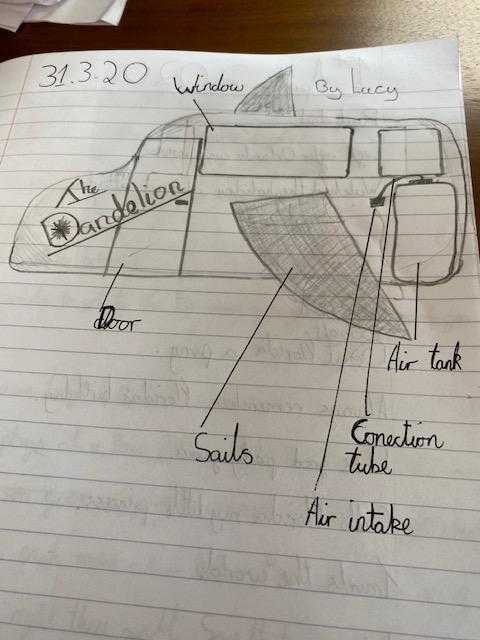 31.3.20
Window
By Lucy
The
Dandelion
Door
Air tank
Sails
Conection
tube
Air intake